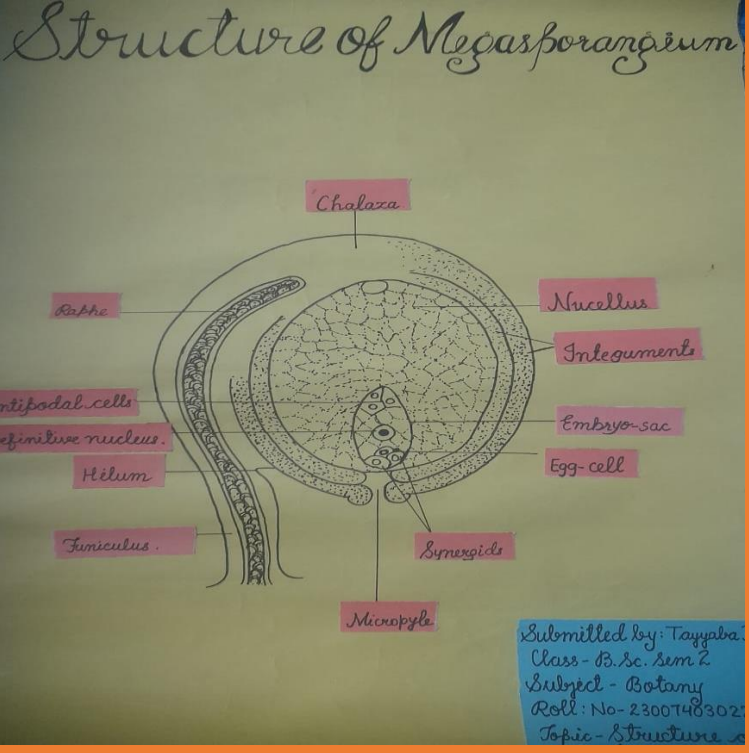 Structure of Megasporangium
Chalaza
Raphe
Nucellus
Integuments
ntipodal cells
efinitive nucleus.
Embryo-sac
Hilum
Egg-cell
Funiculus.
Synergids
Micropyle
Submitted by: Tayyaba
Class - B.Sc. Sem 2
Subject - Botany
Roll: No - 2300740302
Topic - Structure